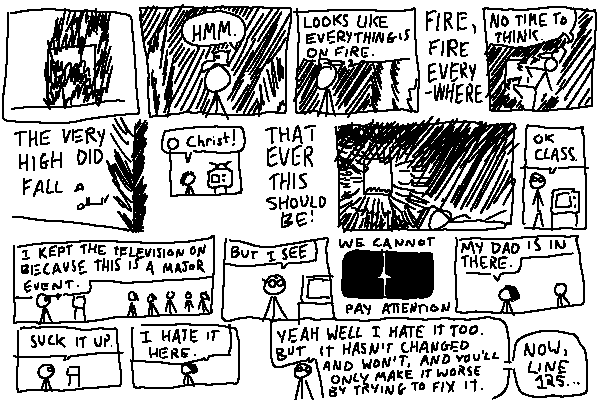 HMM.
LOOKS LIKE
EVERYTHING IS
ON FIRE.
FIRE,
FIRE
EVERY
-WHERE
NO TIME TO
THINK.
THE VERY
HIGH DID
FALL
O Christ!
THAT
EVER
THIS
SHOULD
BE!
OK
CLASS.
I KEPT THE TELEVISION ON
BECAUSE THIS IS A MAJOR
EVENT.
BUT I SEE
WE CANNOT
PAY ATTENTION
MY DAD IS IN
THERE.
SUCK IT UP.
I HATE IT
HERE.
YEAH WELL I HATE IT TOO.
BUT IT HASN'T CHANGED
AND WON'T, AND YOU'LL
ONLY MAKE IT WORSE
BY TRYING TO FIX IT.
NOW,
LINE
125...